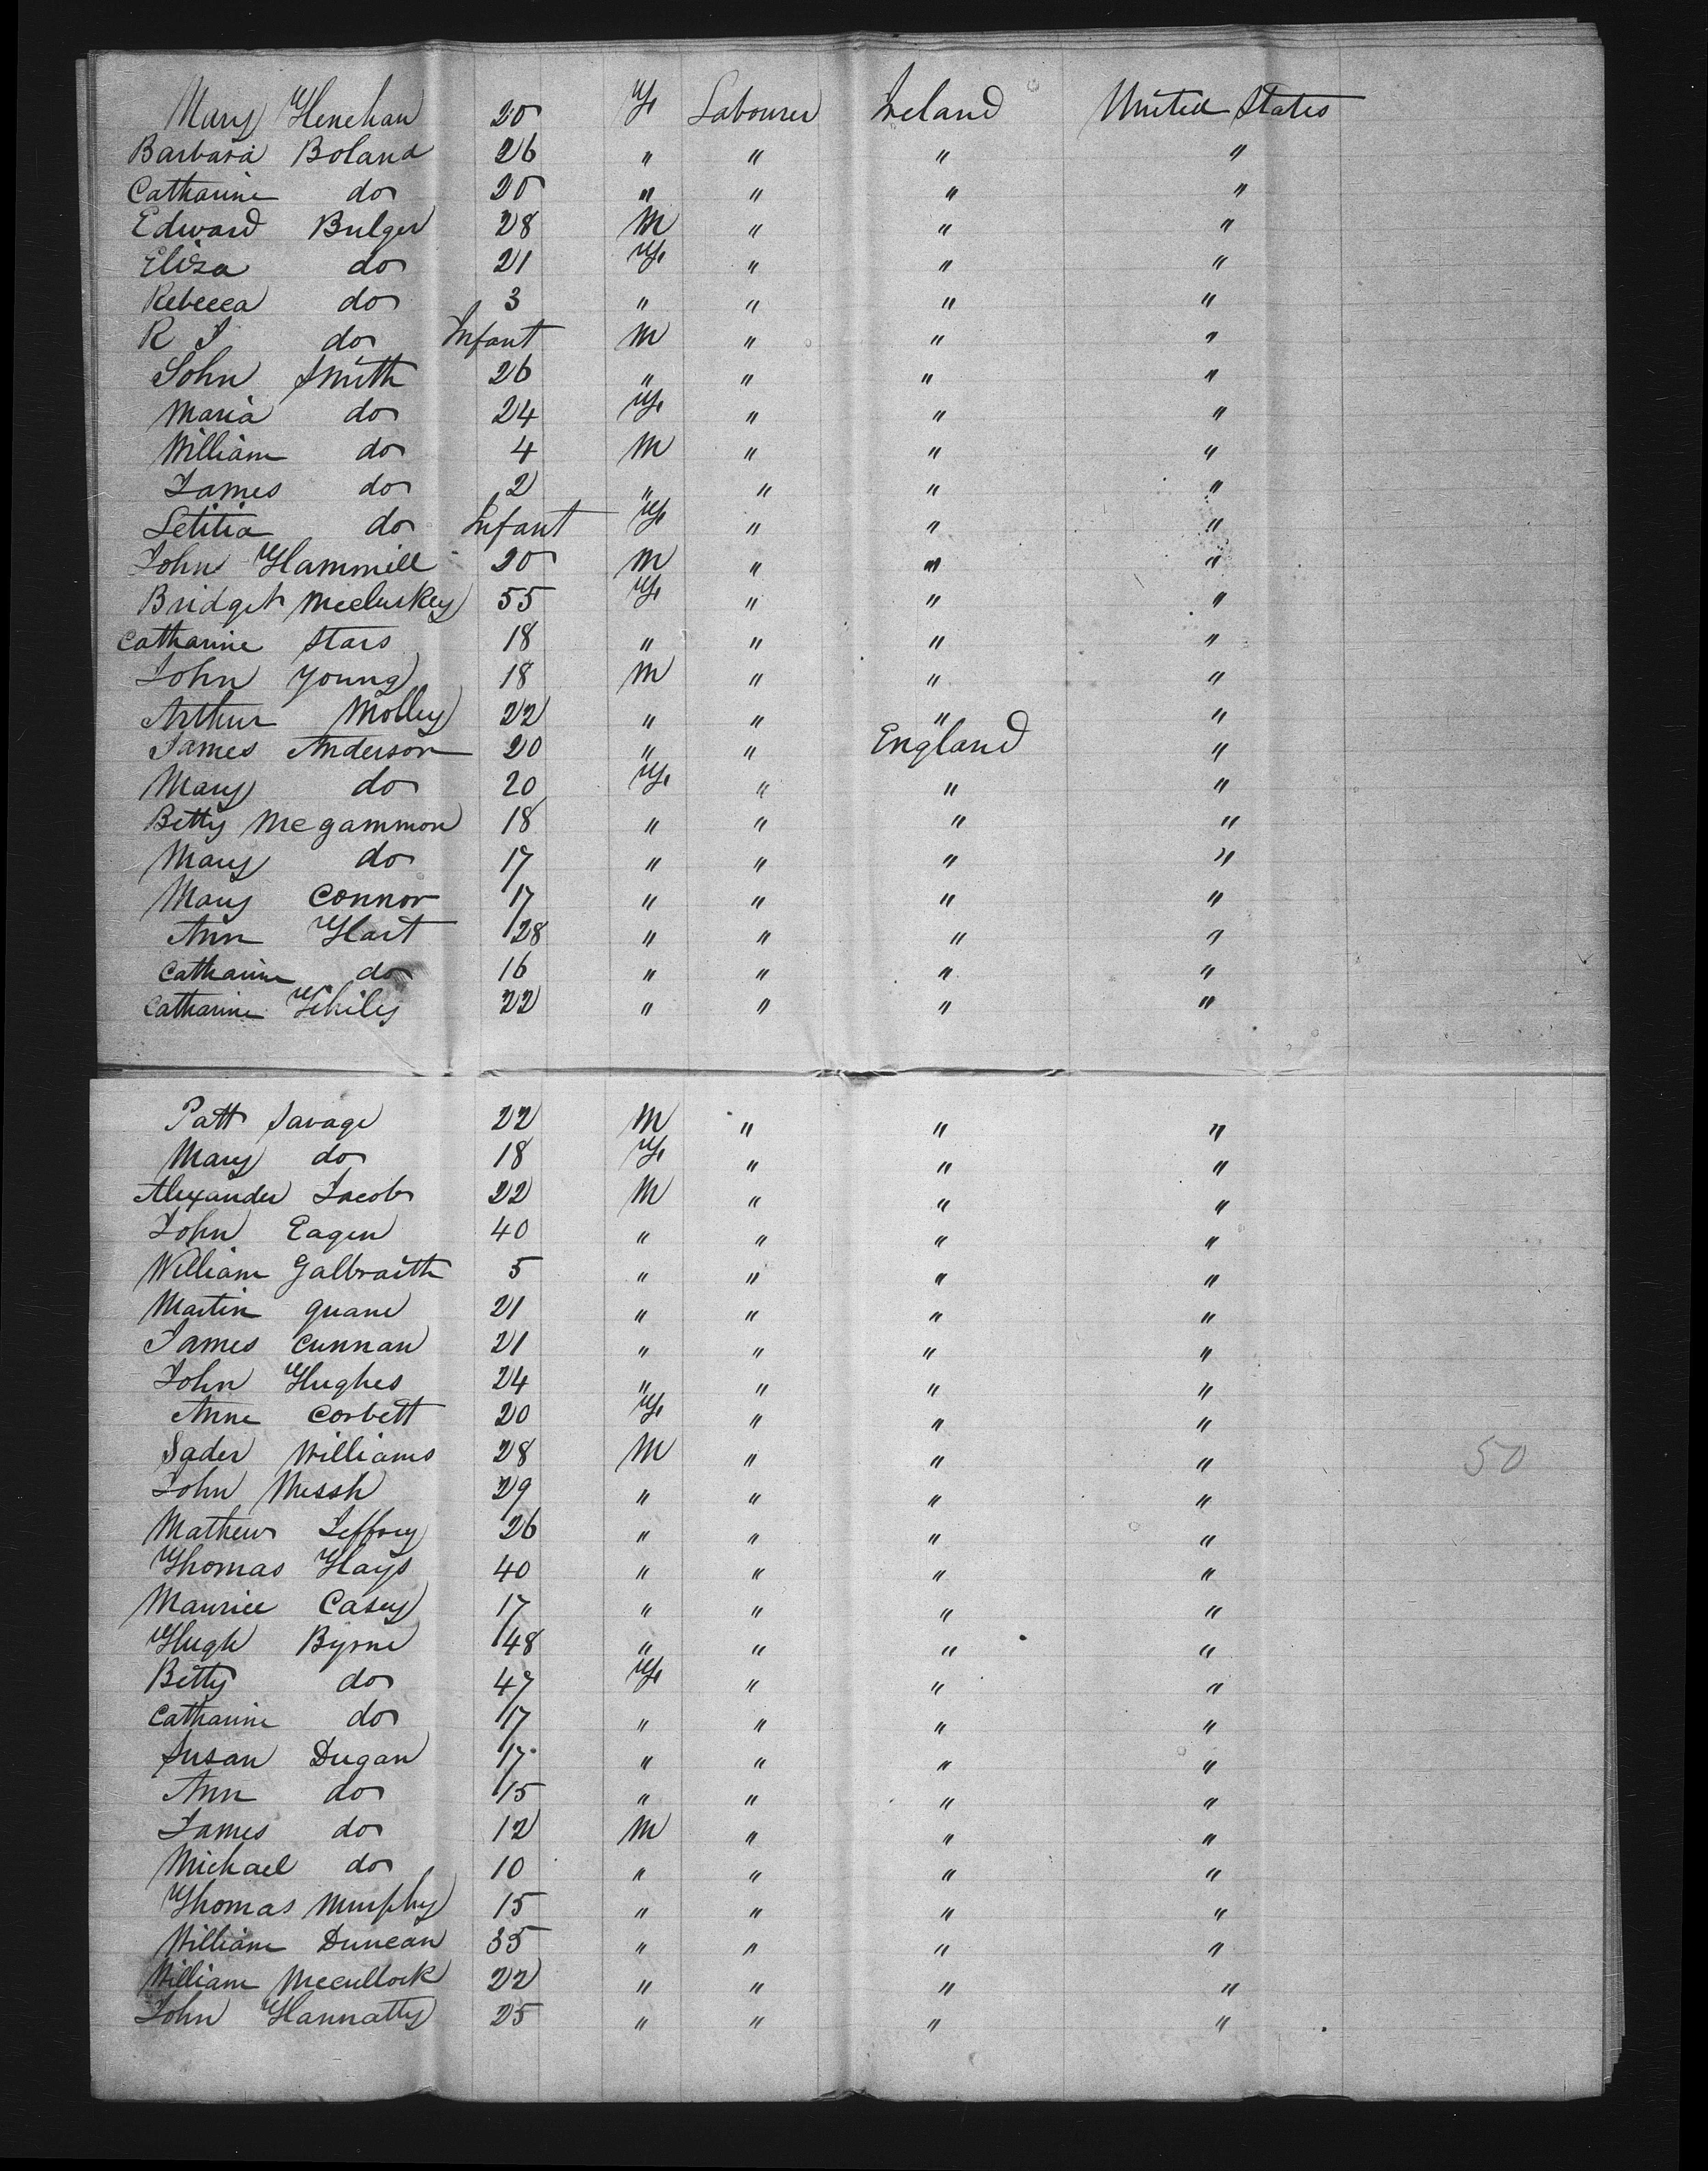 Mary Henehan 20 F Labourer Ireland United States
Barbara Boland 26 " " " "
Catharine do 20 " " " "
Edward Bulger 28 M " " "
Eliza do 21 F " " "
Rebecca do 3 " " " "
R J do Infant M " " "
John Smith 26 " " " "
Maria do 24 F " " "
William do 4 M " " "
James do 2 " " " "
Letitia do Infant F " " "
John Hammill 20 M " " "
Bridget McCluskey 55 F " " "
Catharine Stars 18 " " " "
John Young 18 M " " "
Arthur Molley 22 " " " "
James Anderson 20 " " England "
Mary do 20 F " " "
Betty McGammon 18 " " " "
Mary do 17 " " " "
Mary Connor 17 " " " "
Ann Hart 28 " " " "
Catharine do 16 " " " "
Catharine 22 " " " "
Patt Savage 22 M " " "
Mary do 18 F " " "
Alexander Jacob 22 M " " "
John Eagen 40 " " " "
William Galbraith 5 " " " "
Martin Quane 21 " " " "
James Cunnan 21 " " " "
John Hughes 24 " " " "
Anne Corbett 20 F " " "
Sader Williams 28 M " " " 50
John Messh 29 " " " "
Mathew Jeffrey 26 " " " "
Thomas Hays 40 " " " "
Maurice Casey 17 " " " "
Hugh Byrne 48 " " " "
Betty do 47 F " " "
Catharine do 17 " " " "
Susan Dugan 17 " " " "
Ann do 15 " " " "
James do 12 M " " "
Michael do 10 " " " "
Thomas Murphy 15 " " " "
William Duncan 35 " " " "
William McCullock 22 " " " "
John Hannatty 25 " " " "